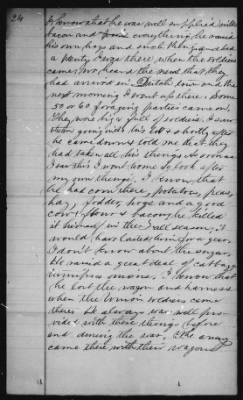 24
I know that he was well supplied with
bacon and everything, he raised
his own hogs and such things and had
a plenty. I was there, when the soldiers
came, we heard the word that they
had arrived in town and the
next morning I went up there. Some
50 or 60 foraging parties came on,
They were full of soldiers. I saw
going with his & shortly after
he came down & told me that they
had taken all his things. As soon as
I saw this I went home to look after
my own things. I know that
he had corn there, potatoes, peas,
hay, fodder, hogs and a good
cow, flour & bacon, he killed
it himself, in the fall season, it
would have lasted him for a year.
I don't know about the sugar.
He raised a great deal of cabbage
turnips onions. I know that
he lost the wagon and harness
when the Union soldiers came
there. He always was well pro-
vided with these things before
and during the war. The army
came there with their wagons